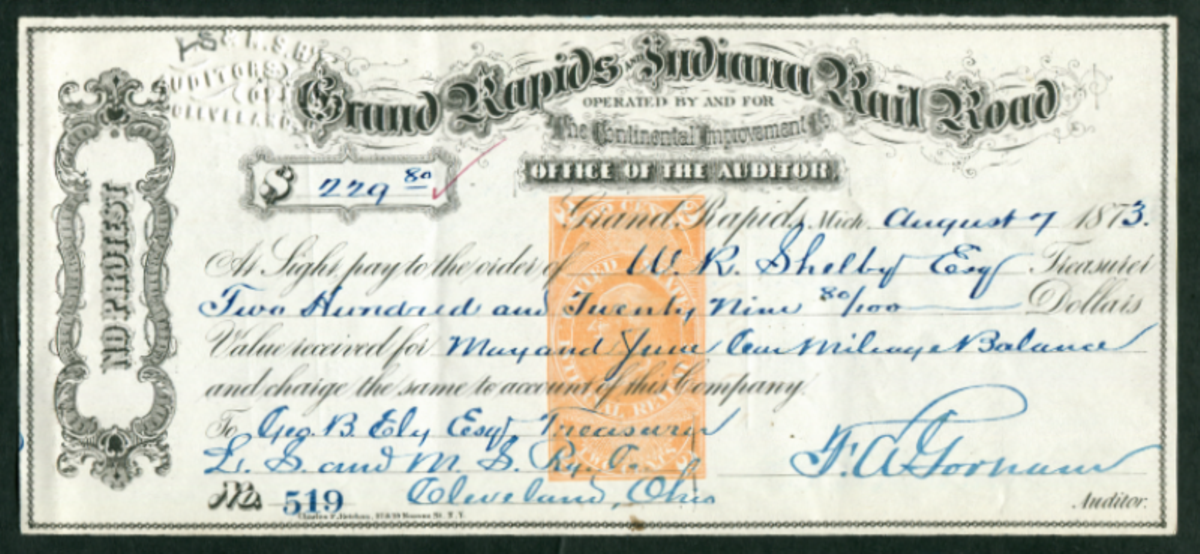 AUDITORS
CLEVELAND
Grand Rapids AND Indiana Rail Road
OPERATED BY AND FOR
The Continental Improvement Co.
OFFICE OF THE AUDITOR,
NO PROTEST
$ 229 80
Grand Rapids, Mich. August 7 1873.
At Sight pay to the order of W. R. Shelby Esq Treasurer
Two Hundred and Twenty Nine 80/100 Dollars
Value received for May and June Car Mileage Balance
and charge the same to account of this Company.
To Geo. B. Ely Esqr Treasurer
L. S. and M. S. Ry. Co.
Cleveland, Ohio
No. 519
F. A. Gorham
Auditor.